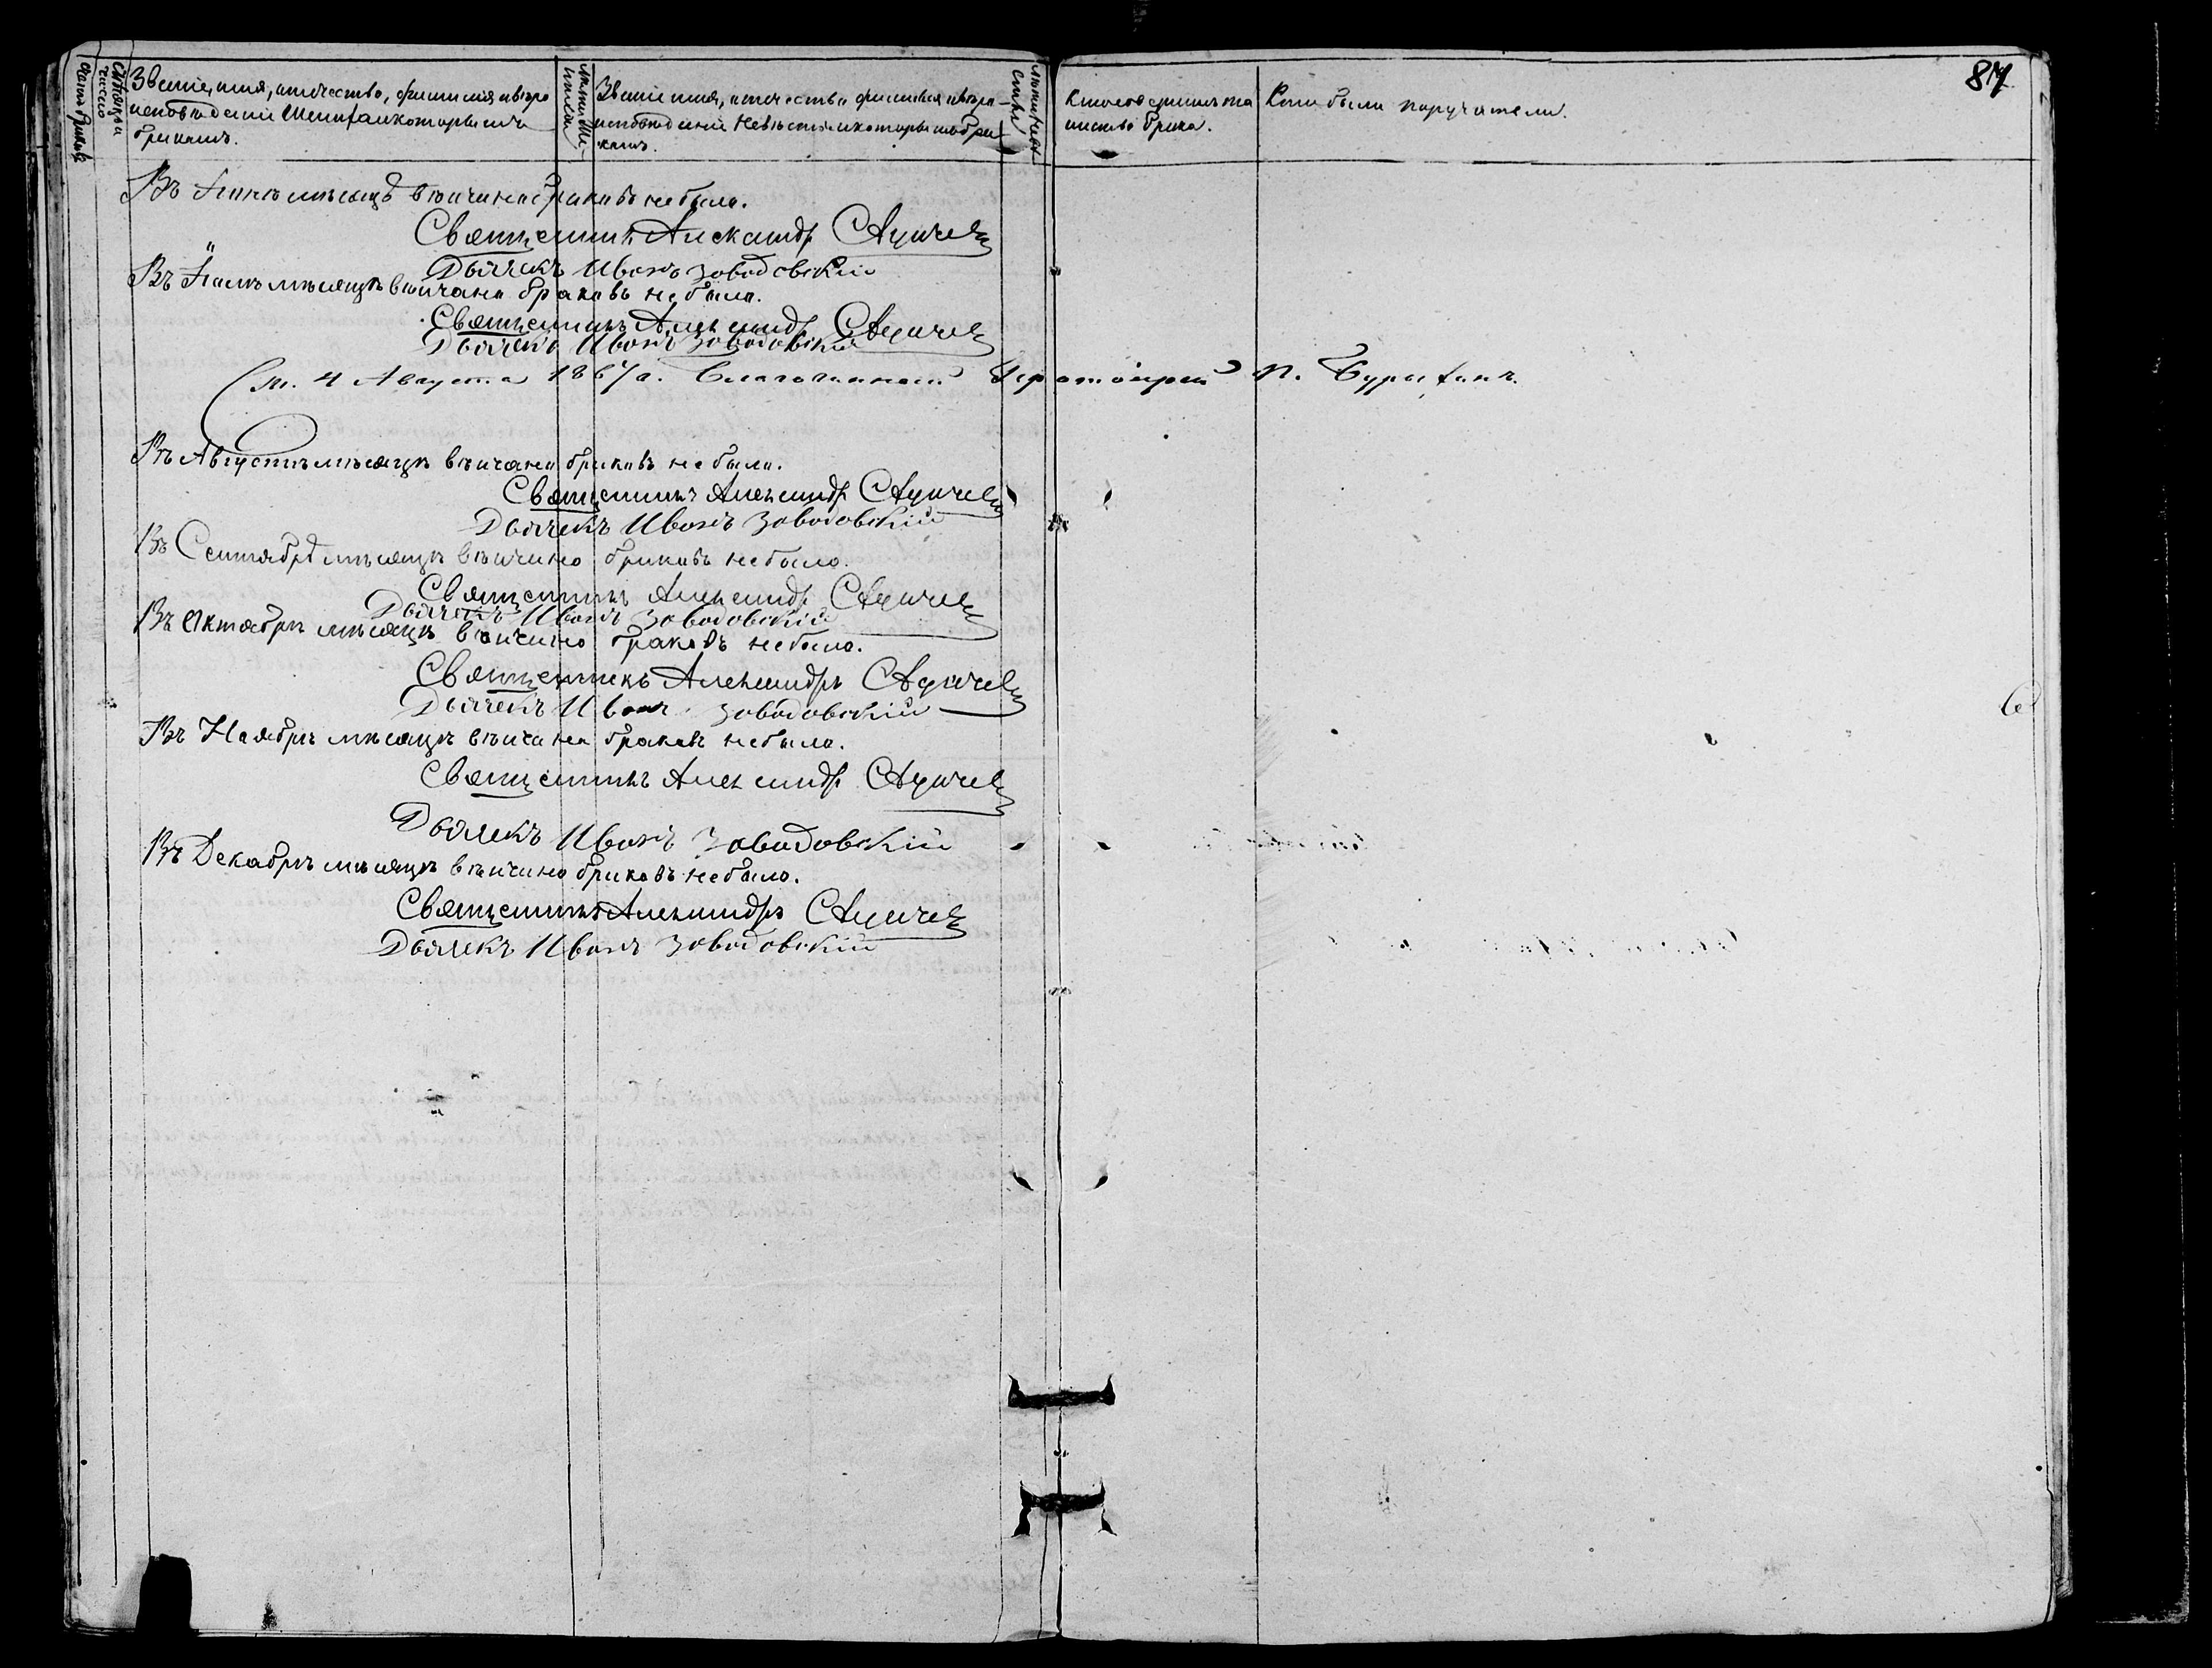 87
Счетъ браковъ
Мѣсяцъ и число
Званіе, имя, отчество, фамилія и вѣро-
исповѣданіе Жениха и которымъ
бракомъ.
Лѣта Же-
ниха
Званіе имя, отчество фамилія и вѣро-
исповѣданіе Невѣсты и которымъ бра-
комъ.
Лѣта Невѣсты
Кто совершилъ та
инство брака.
Кто были поручатели.
Въ Іюнѣ мѣсяцѣ вѣнчано браковъ не было.
Священникъ Александръ
Дьячекъ Иванъ Заводовскій
Въ Іюлѣ мѣсяцѣ вѣнчано браковъ не было.
Священникъ Александръ
Дьячекъ Иванъ Заводовскій
4 Августа 1867 г. Благочинный Протоіерей П.
Въ Августѣ мѣсяцѣ вѣнчано браковъ не было.
Священникъ Александръ
Дьячекъ Иванъ Заводовскій
Въ Сентябрѣ мѣсяцѣ вѣнчано браковъ не было.
Священникъ Александръ
Дьячекъ Иванъ Заводовскій
Въ Октябрѣ мѣсяцѣ вѣнчано браковъ не было.
Священникъ Александръ
Дьячекъ Иванъ Заводовскій
Въ Ноябрѣ мѣсяцѣ вѣнчано браковъ не было.
Священникъ Александръ
Дьячекъ Иванъ Заводовскій
Въ Декабрѣ мѣсяцѣ вѣнчано браковъ не было.
Священникъ Александръ
Дьячекъ Иванъ Заводовскій